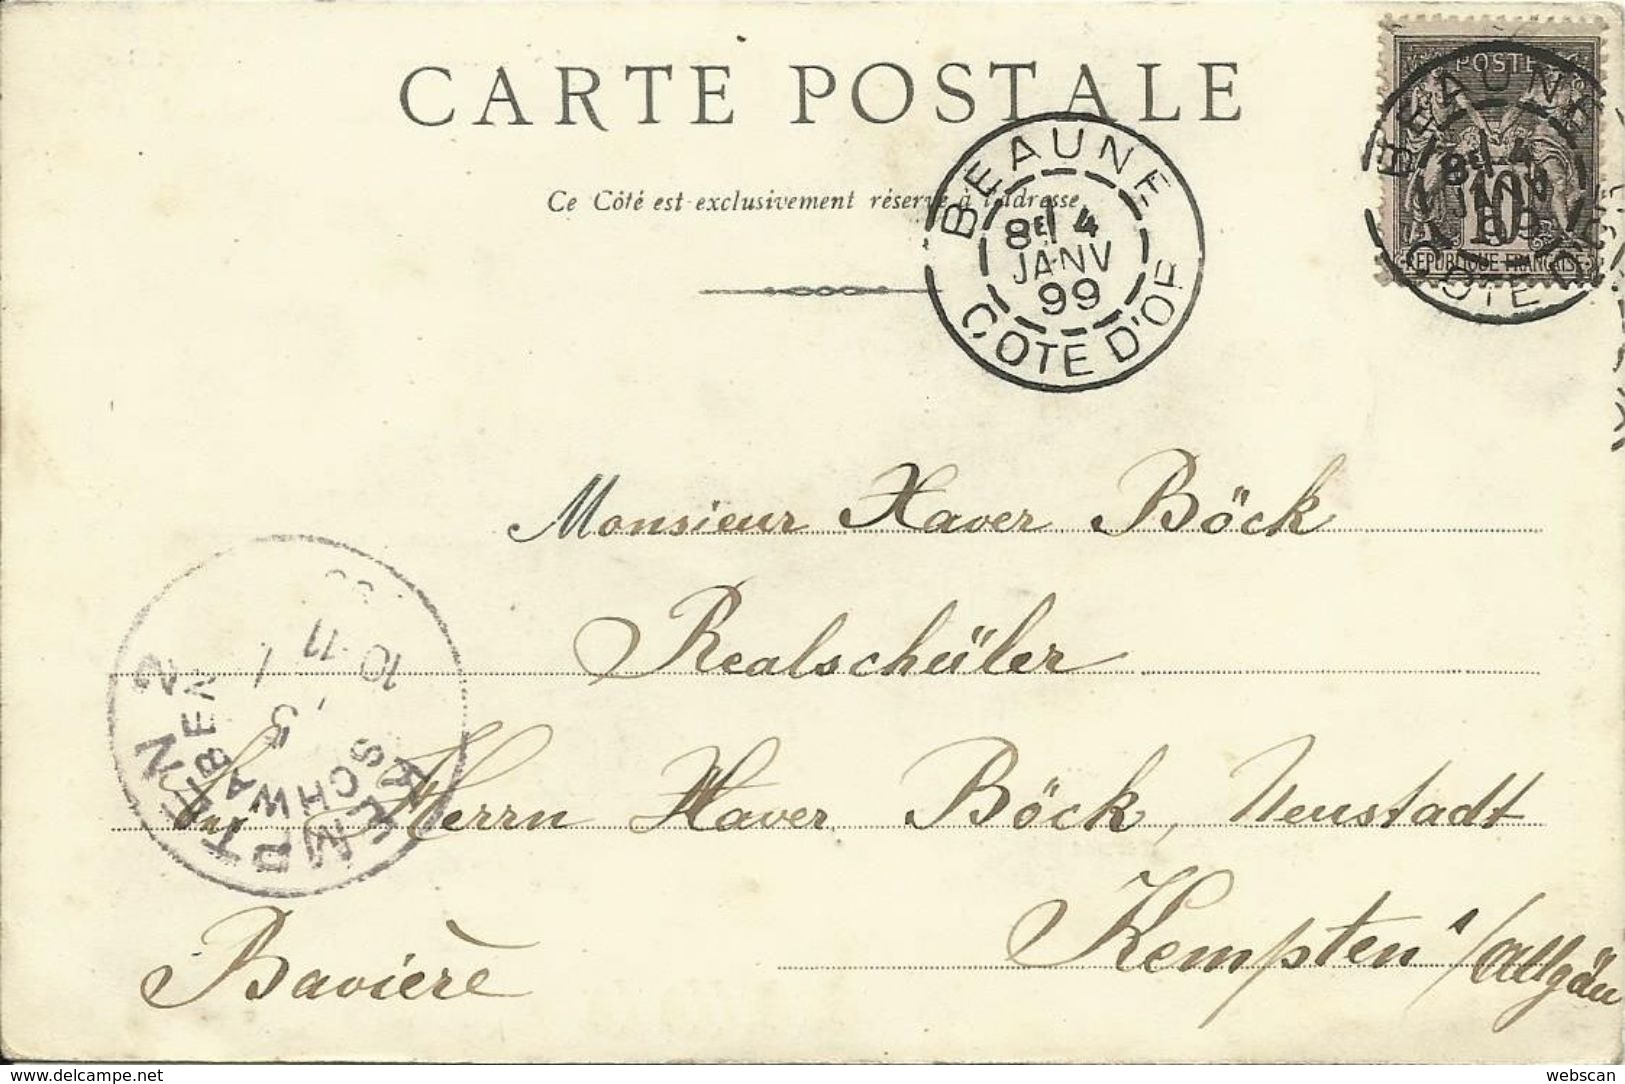 CARTE POSTALE
Ce Côté est exclusivement réservé à l'adresse
POSTES
10
REPUBLIQUE FRANÇAISE
BEAUNE
8E 4
JANV
99
COTE D'OR
BEAUNE
8E 4
JANV
99
COTE D'OR
Monsieur Xaver Böck
Realschüler
Herrn Xaver Böck, Neustadt
Kempten /Allgäu
Bavière
KEMPTEN 2
SCHWABEN
5
10-11
www.delcampe.net
webscan